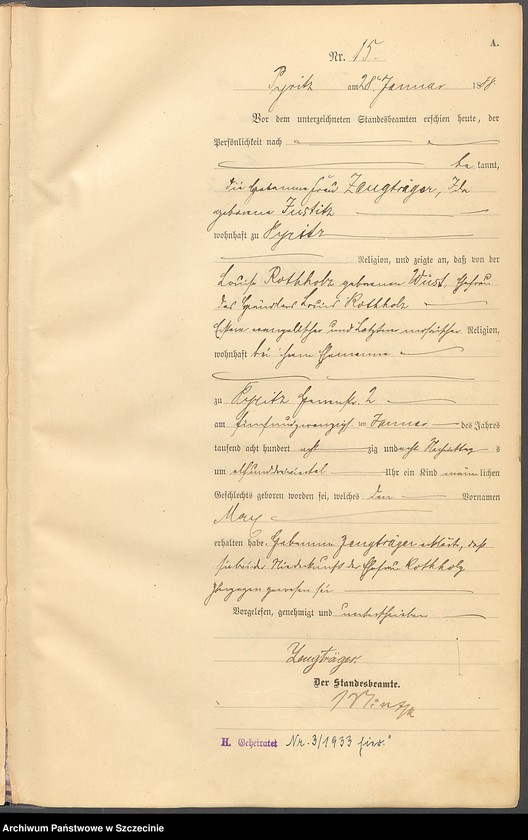 A.
Nr. 15.
Pyritz am 28. Januar 1888.
Vor dem unterzeichneten Standesbeamten erschien heute, der
Persönlichkeit nach
bekannt,
die Hebamme Frau Zeugträger, Ida
geborene Justitz
wohnhaft zu Pyritz
Religion, und zeigte an, daß von der
Louise Rothholz geborenen Wüst, Ehefrau
des Händlers Louis Rothholz
Erstere evangelischer und Letzterer mosaischer Religion,
wohnhaft bei ihrem Ehemanne
zu Pyritz 2
am fünfundzwanzigsten Januar des Jahres
tausend acht hundert achtzig und acht Nachmittags
um elfunddreiviertel Uhr ein Kind männlichen
Geschlechts geboren worden sei, welches den Vornamen
Max
erhalten habe. Hebamme Zeugträger erklärt, daß
sie bei der Niederkunft der Ehefrau Rothholz
zugegen gewesen sei
Vorgelesen, genehmigt und unterschrieben
Zeugträger.
Der Standesbeamte.
H. Geheiratet Nr. 3/1933 hier.
Archiwum Państwowe w Szczecinie